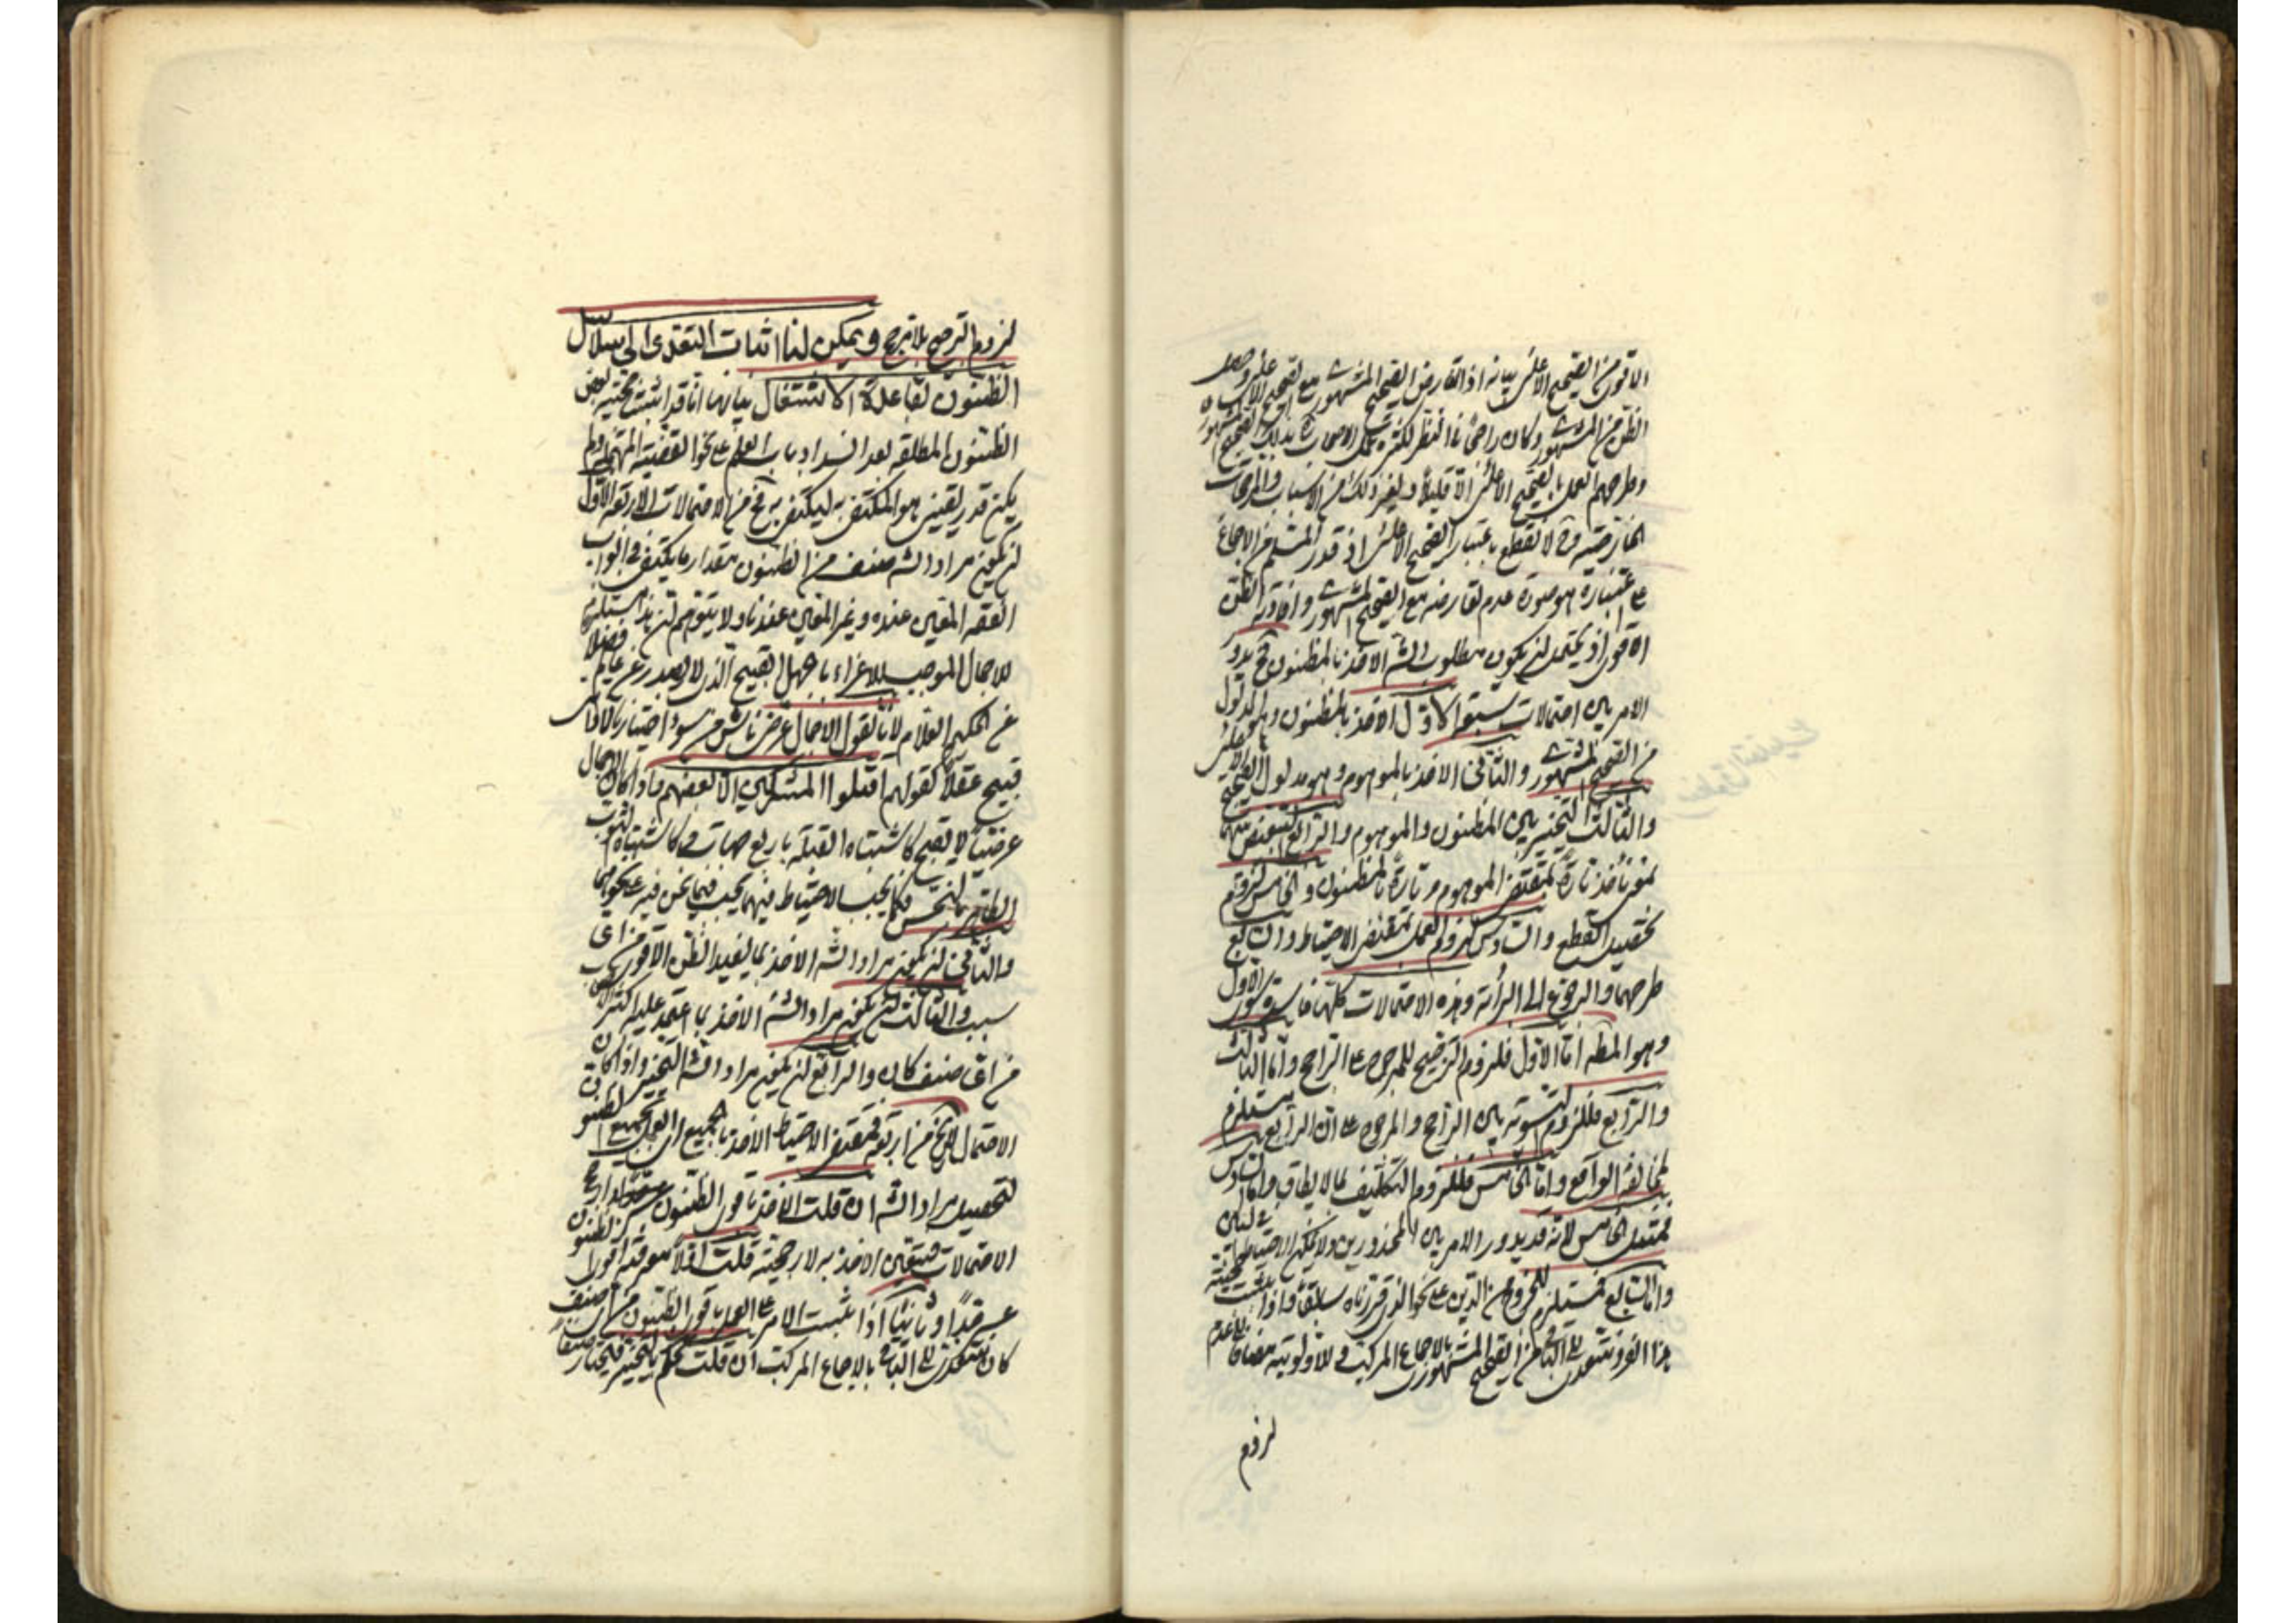 الاقوى من الصحيح الاعلى بيانه اذا تعارض الصحيح المشهور مع الصحيح الاعلى وحصل
الظن من المشهور وكان راجحا في النظر لكثرة عمل الاصحاب بذلك الصحيح المشهور
وطرحهم العمل بالصحيح الاعلى الا قليلا ولغير ذلك من الاسباب والمرجحات
الخارجية وح لا نقطع باعتبار الصحيح الاعلى اذ قدر المسلم من الاجماع
على اعتباره هو صورة عدم تعارضه مع الصحيح المشهور وافادة الظن
الاقوى اذ يحتمل ان يكون مطلوب الش الاخذ بالمظنون فح يدور
الامر بين احتمالات سبعة الاول الاخذ بالمظنون وهو المدلول
من الصحيح المشهور والثانى الاخذ بالموهوم وهو مدلول الصحيح الاعلى
والثالث التخيير بين المظنون والموهوم والرابع التبعيض بينهما
بمعنى نأخذ تارة بمقتضى الموهوم وتارة بالمظنون والخامس لزوم
تحصيل القطع والسادس لزوم العمل بمقتضى الاحتياط والسابع
طرحهما والرجوع الى البرائة وهذه الاحتمالات كلها فاسدة سوى الاول
وهو المط اما الاول فللزوم الترجيح للمرجوح على الراجح واما الثالث
والرابع فللزوم التسوية بين الراجح والمرجوح على ان الرابع يستلزم
لمخالفة الواقع واما الخامس فللزوم التكليف بما لا يطاق واما السادس
فمثل الخامس لانه قد يدور الامر بين المحذورين ولا يمكن الاحتياط
واما السابع فمستلزم للخروج عن الدين على نحو الذى قررناه سابقا واذا ثبت حجية
هذا الفرد نتعدى الى الباقى من الصحيح المشهور بالاجماع المركب وللاولوية مضافا الى عدم
لزوم
لزوم الترجيح بلا مرجح ويمكن لنا اثبات التعدى الى سلاسل
الظنون لقاعدة الاشتغال بيانها انا قد اثبت حجية بعض
الظنون المطلقة بعد انسداد باب العلم على نحو القضية المهملة ولم
يكن قدر يقين هو المكتفى به ليكتفى به فح من الاحتمالات الاربعة الاول
ان يكون مراد الش صنف من الظنون بمقدار ما يكتفى فى ابواب
الفقه المعين عنده وغير المعين عندنا ولا يتوهم ان هذا مستلزم
للاجمال الموجب للاغراء بالجهل القبيح الذى لا يصدر عن عالم فضلا
عن الحكيم العلام لانا نقول الاجمال عرضى ناش من سوء اختيارنا لا ذاتى
قبيح عقلا كقولهم اقتلوا المشركين الا بعضهم واذا كان الاجمال
عرضيا لا يقبح كاشتباه القبلة باربع جهات وكاشتباه الثوب
الطاهر بالنجس فكما يجب الاحتياط فيهما يجب فيما نحن فيه على نحوهما
والثانى ان يكون مراد الش الاخذ بما يفيد الظن الاقوى من اى
سبب والثالث ان يكون مراد الش الاخذ بما اعتمد عليه اكثر الاصحاب
من اى صنف كان والرابع ان يكون مراد الش التخيير واذا كان
الاحتمال لا يخ من اربعة فمقتضى الاحتياط الاخذ بالجميع اى العمل بجميع الظنون
لتحصيل مراد الش ان قلت الاخذ باقوى الظنون
الاحتمالات متيقن الاخذ به لارجحيته قلت اولا معرفة اقوى الظنون
عسر جدا وثانيا اذا ثبت الامر على العمل باقوى الظنون من اى صنف
كان نتعدى الى الباقى بالاجماع المركب ان قلت نحكم بالتخيير فنختار صنفا